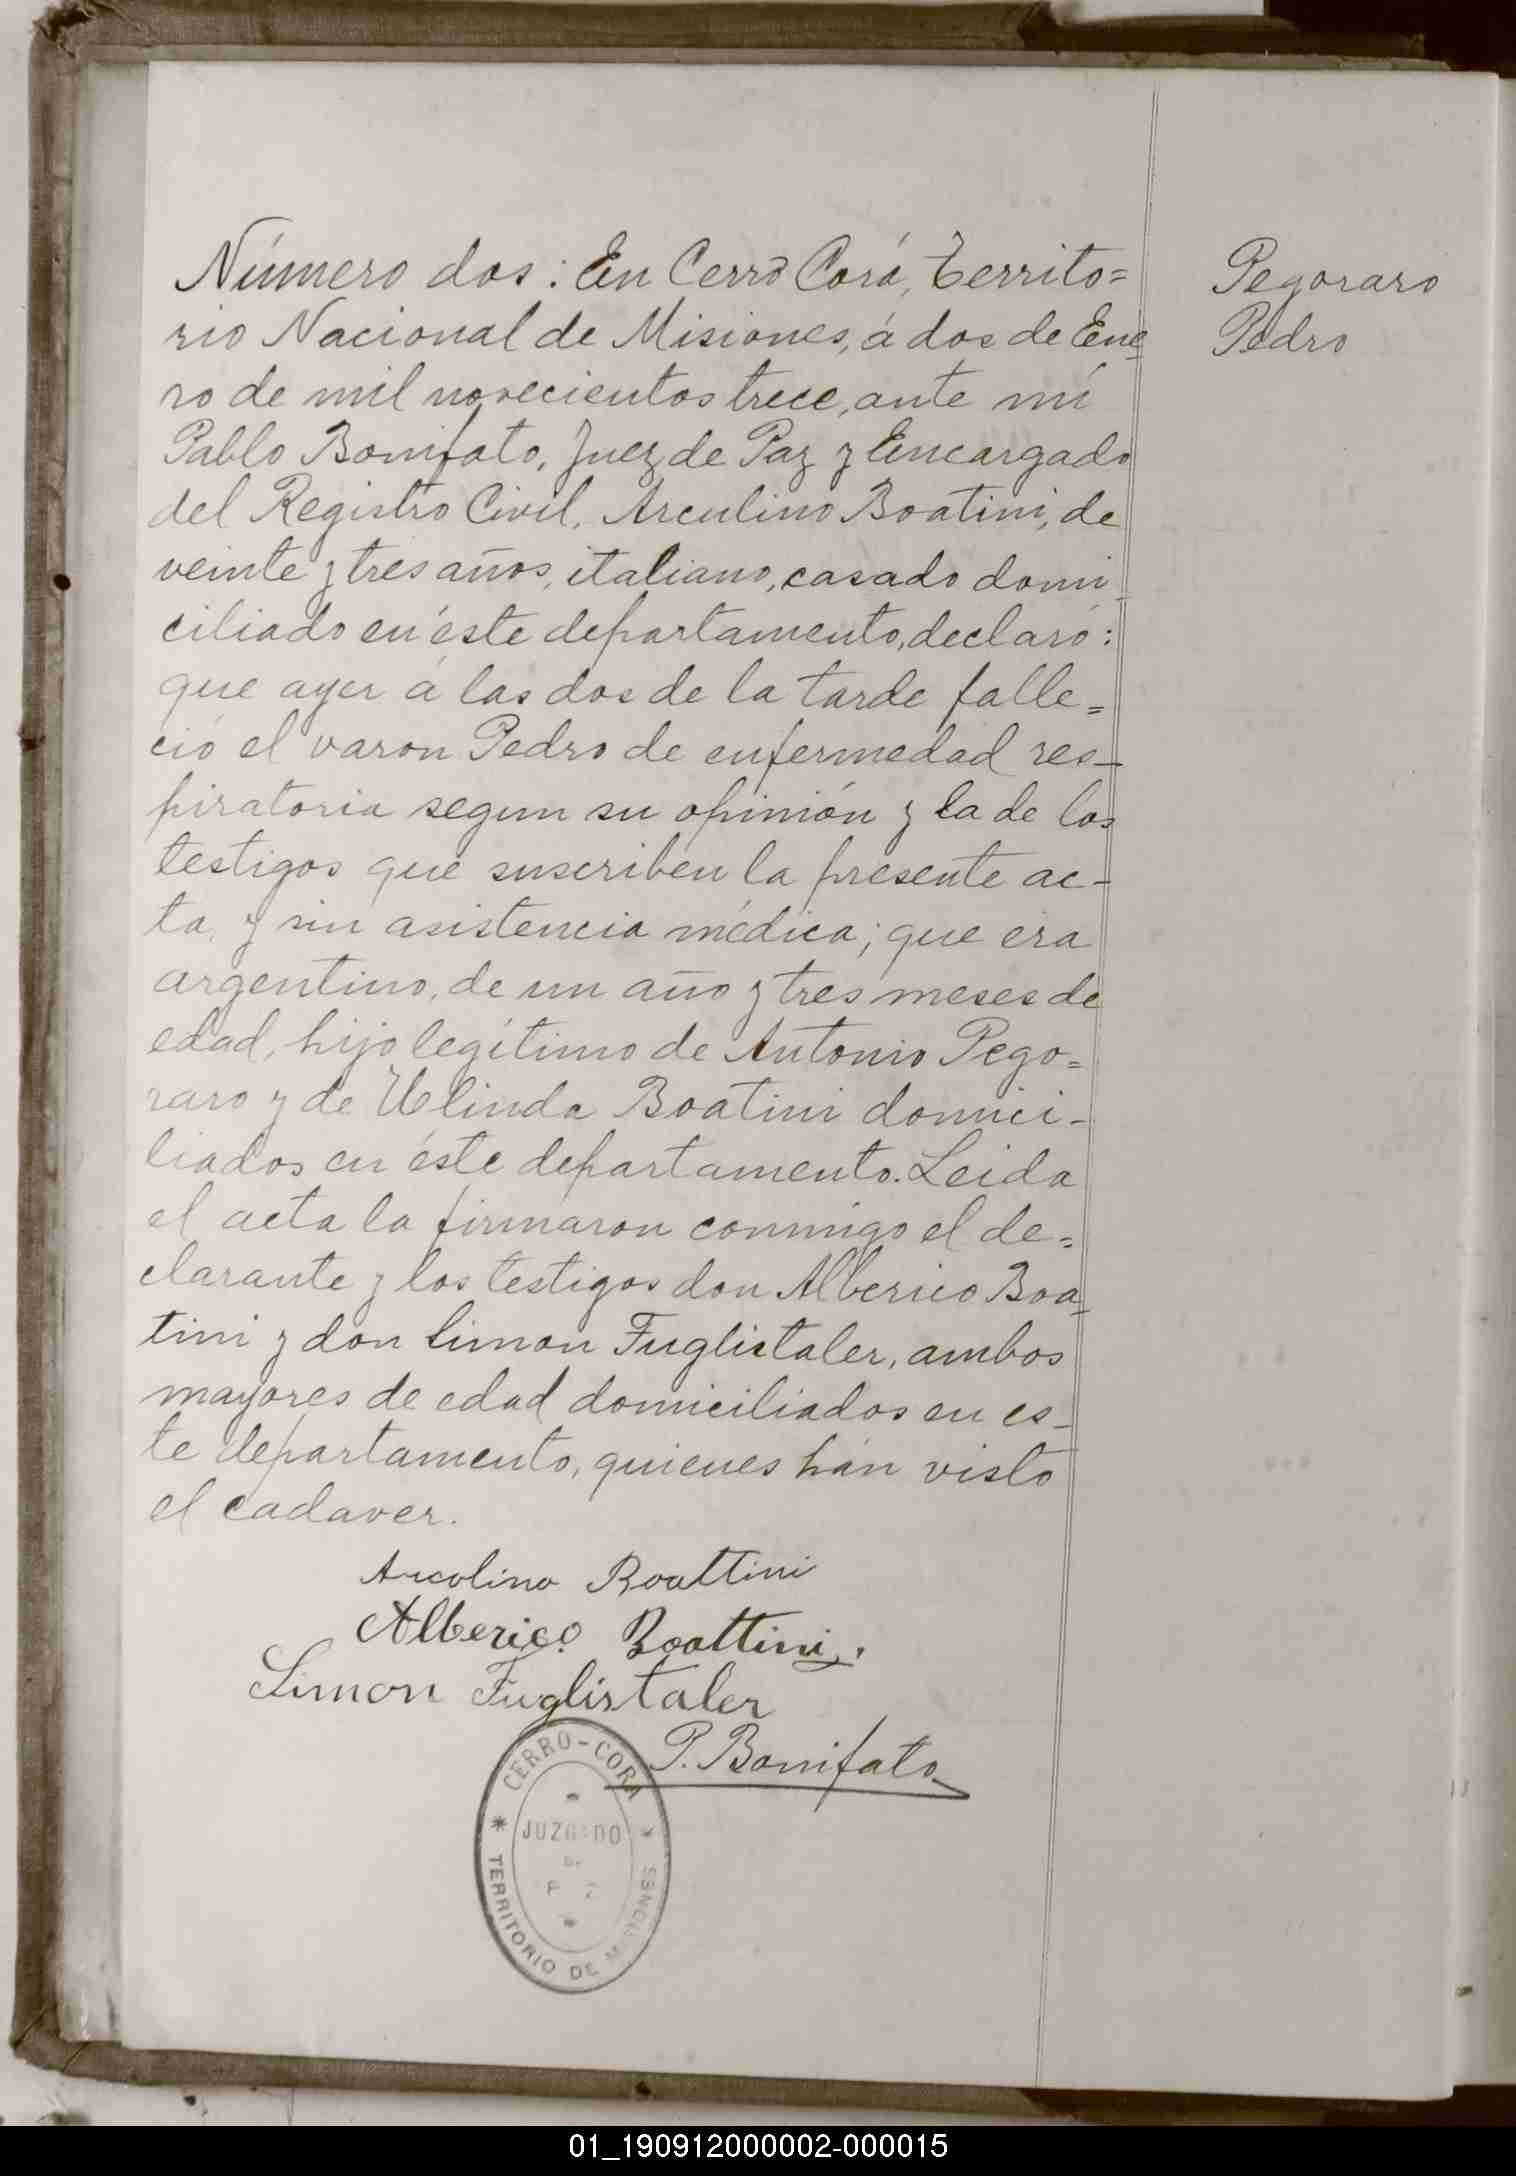 Número dos: En Cerro Corá, Territo=
rio Nacional de Misiones, á dos de Ene-
ro de mil novecientos trece, ante mí
Pablo Bonifato, Juez de Paz y Encargado
del Registro Civil, Arculino Boatini, de
veinte y tres años, italiano, casado domi-
ciliado en éste departamento, declaró:
que ayer á las dos de la tarde falle=
ció el varon Pedro de enfermedad res-
piratoria segun su opinión y la de los
testigos que suscriben la presente ac-
ta, y sin asistencia médica; que era
argentino, de un año y tres meses de
edad, hijo legítimo de Antonio Pego=
raro y de Ulinda Boatini domici-
liados en éste departamento. Leida
el acta la firmaron conmigo el de=
clarante y los testigos don Alberico Boa-
tini y don Simon Fuglistaler, ambos
mayores de edad domiciliados en es-
te departamento, quienes hán visto
el cadaver.
Pegoraro
Pedro
Arcolino Boattini
Alberico Boattini.
Simon Fuglistaler
P. Bonifato
CERRO-CORA
JUZGADO
DE
TERRITORIO DE MISIONES
01_190912000002-000015